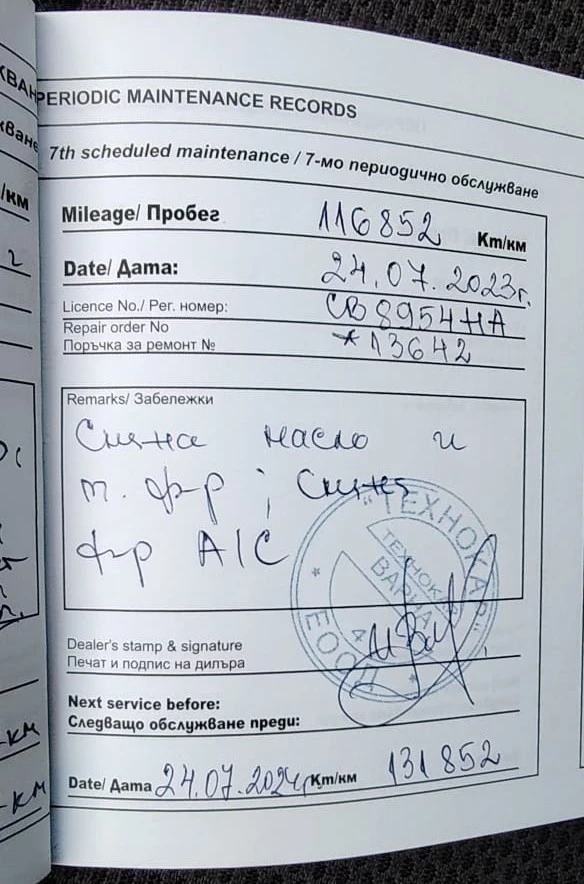 PERIODIC MAINTENANCE RECORDS
7th scheduled maintenance / 7-мо периодично обслужване
Mileage/ Пробег 116 852 Km/км
Date/ Дата: 24.07.2023г.
Licence No./ Рег. номер: СВ 8954 НА
Repair order No
Поръчка за ремонт № *13642
Remarks/ Забележки
Смяна масло и
м. ф-р ; Смяна
ф-р A/C
"ТЕХНОКАР"
ТЕХНОКАР
ВАРНА
4
ЕООД
Dealer's stamp & signature
Печат и подпис на дилъра
Next service before:
Следващо обслужване преди:
Date/ Дата 24.07.2024г. Km/км 131 852